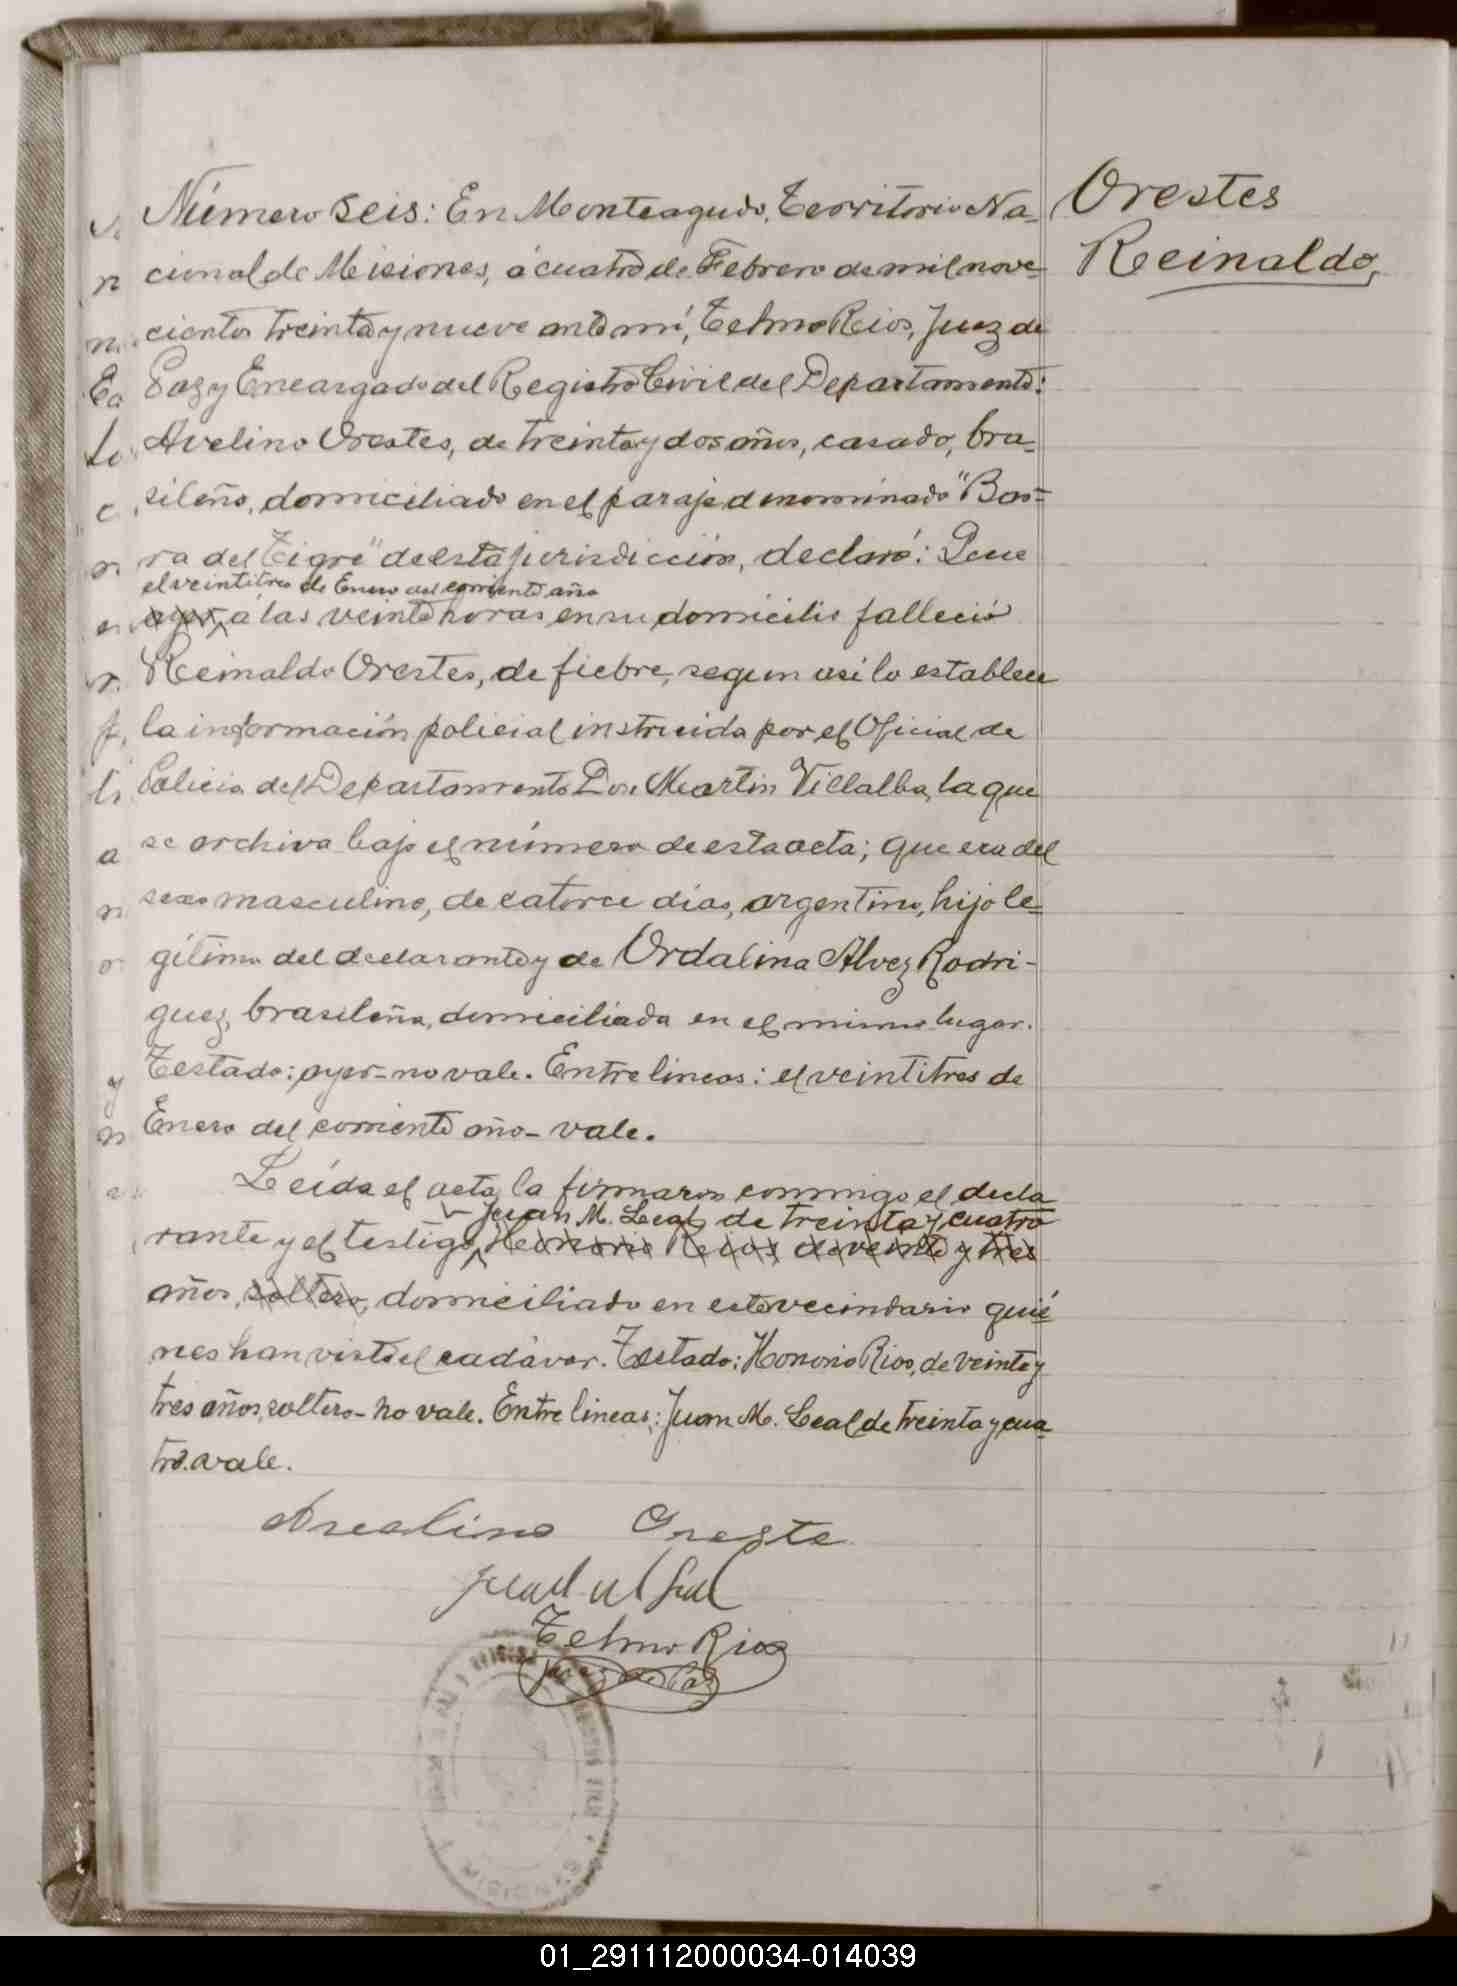 Orestes
Reinaldo,
Número Seis: En Monteagudo, Territorio Na-
cional de Misiones, á cuatro de Febrero de mil nove-
cientos treinta y nueve ante mí, Telmo Rios, Juez de
Paz y Encargado del Registro Civil del Departamento:
Avelino Orestes, de treinta y dos años, casado, bra-
sileño, domiciliado en el paraje denominado "Bar-
ra del Tigre" de esta jurisdicción, declaró: Que
el veintitres de Enero del corriente año
ayer á las veinte horas en su domicilio falleció
Reinaldo Orestes, de fiebre, segun asi lo establece
la información policial instruida por el Oficial de
Policia del Departamento Don Martin Villalba, la que
se archiva bajo el número de esta acta; que era del
sexo masculino, de catorce dias, argentino, hijo le-
gítimo del declarante y de Ordalina Alvez Rodri-
guez, brasileña, domiciliada en el mismo lugar.
Testado: ayer-no vale. Entre lineas: el veintitres de
Enero del corriente año-vale.
Leída el acta, la firmaron conmigo el decla
Juan M. Leal de treinta y cuatro
rante y el testigo Honorio Rios de veinte y tres
años, soltero, domiciliado en este vecindario quié
nes han visto el cadáver. Testado: Honorio Rios, de veinte y
tres años, soltero-no vale. Entre lineas: Juan M. Leal de treinta y cua
tro. vale.
Avelino Oreste
Juan M Leal
Telmo Rios
Juez de Paz
01_291112000034-014039